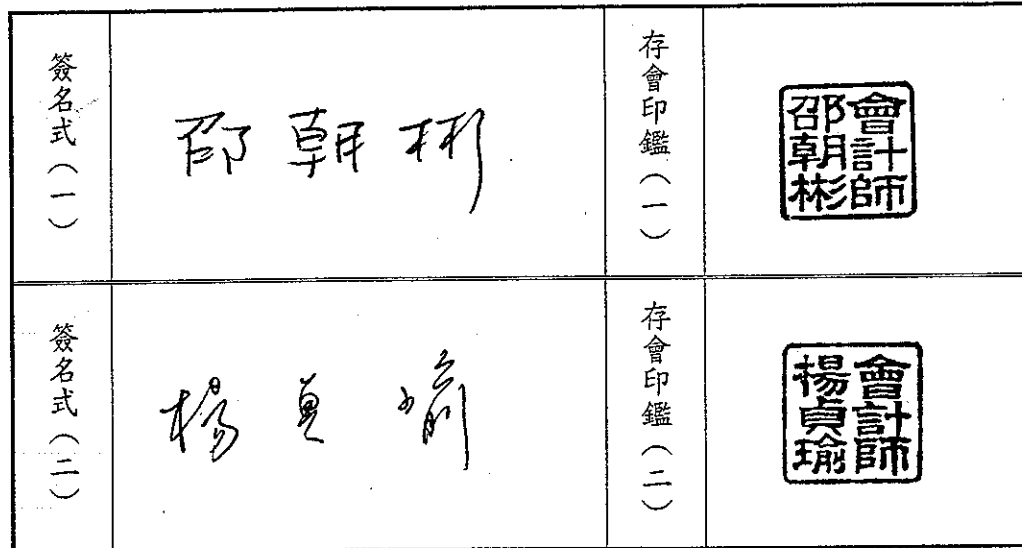 簽名式（一）
邵朝彬
存會印鑑（一）
會計師
邵朝彬
簽名式（二）
楊貞瑜
存會印鑑（二）
會計師
楊貞瑜